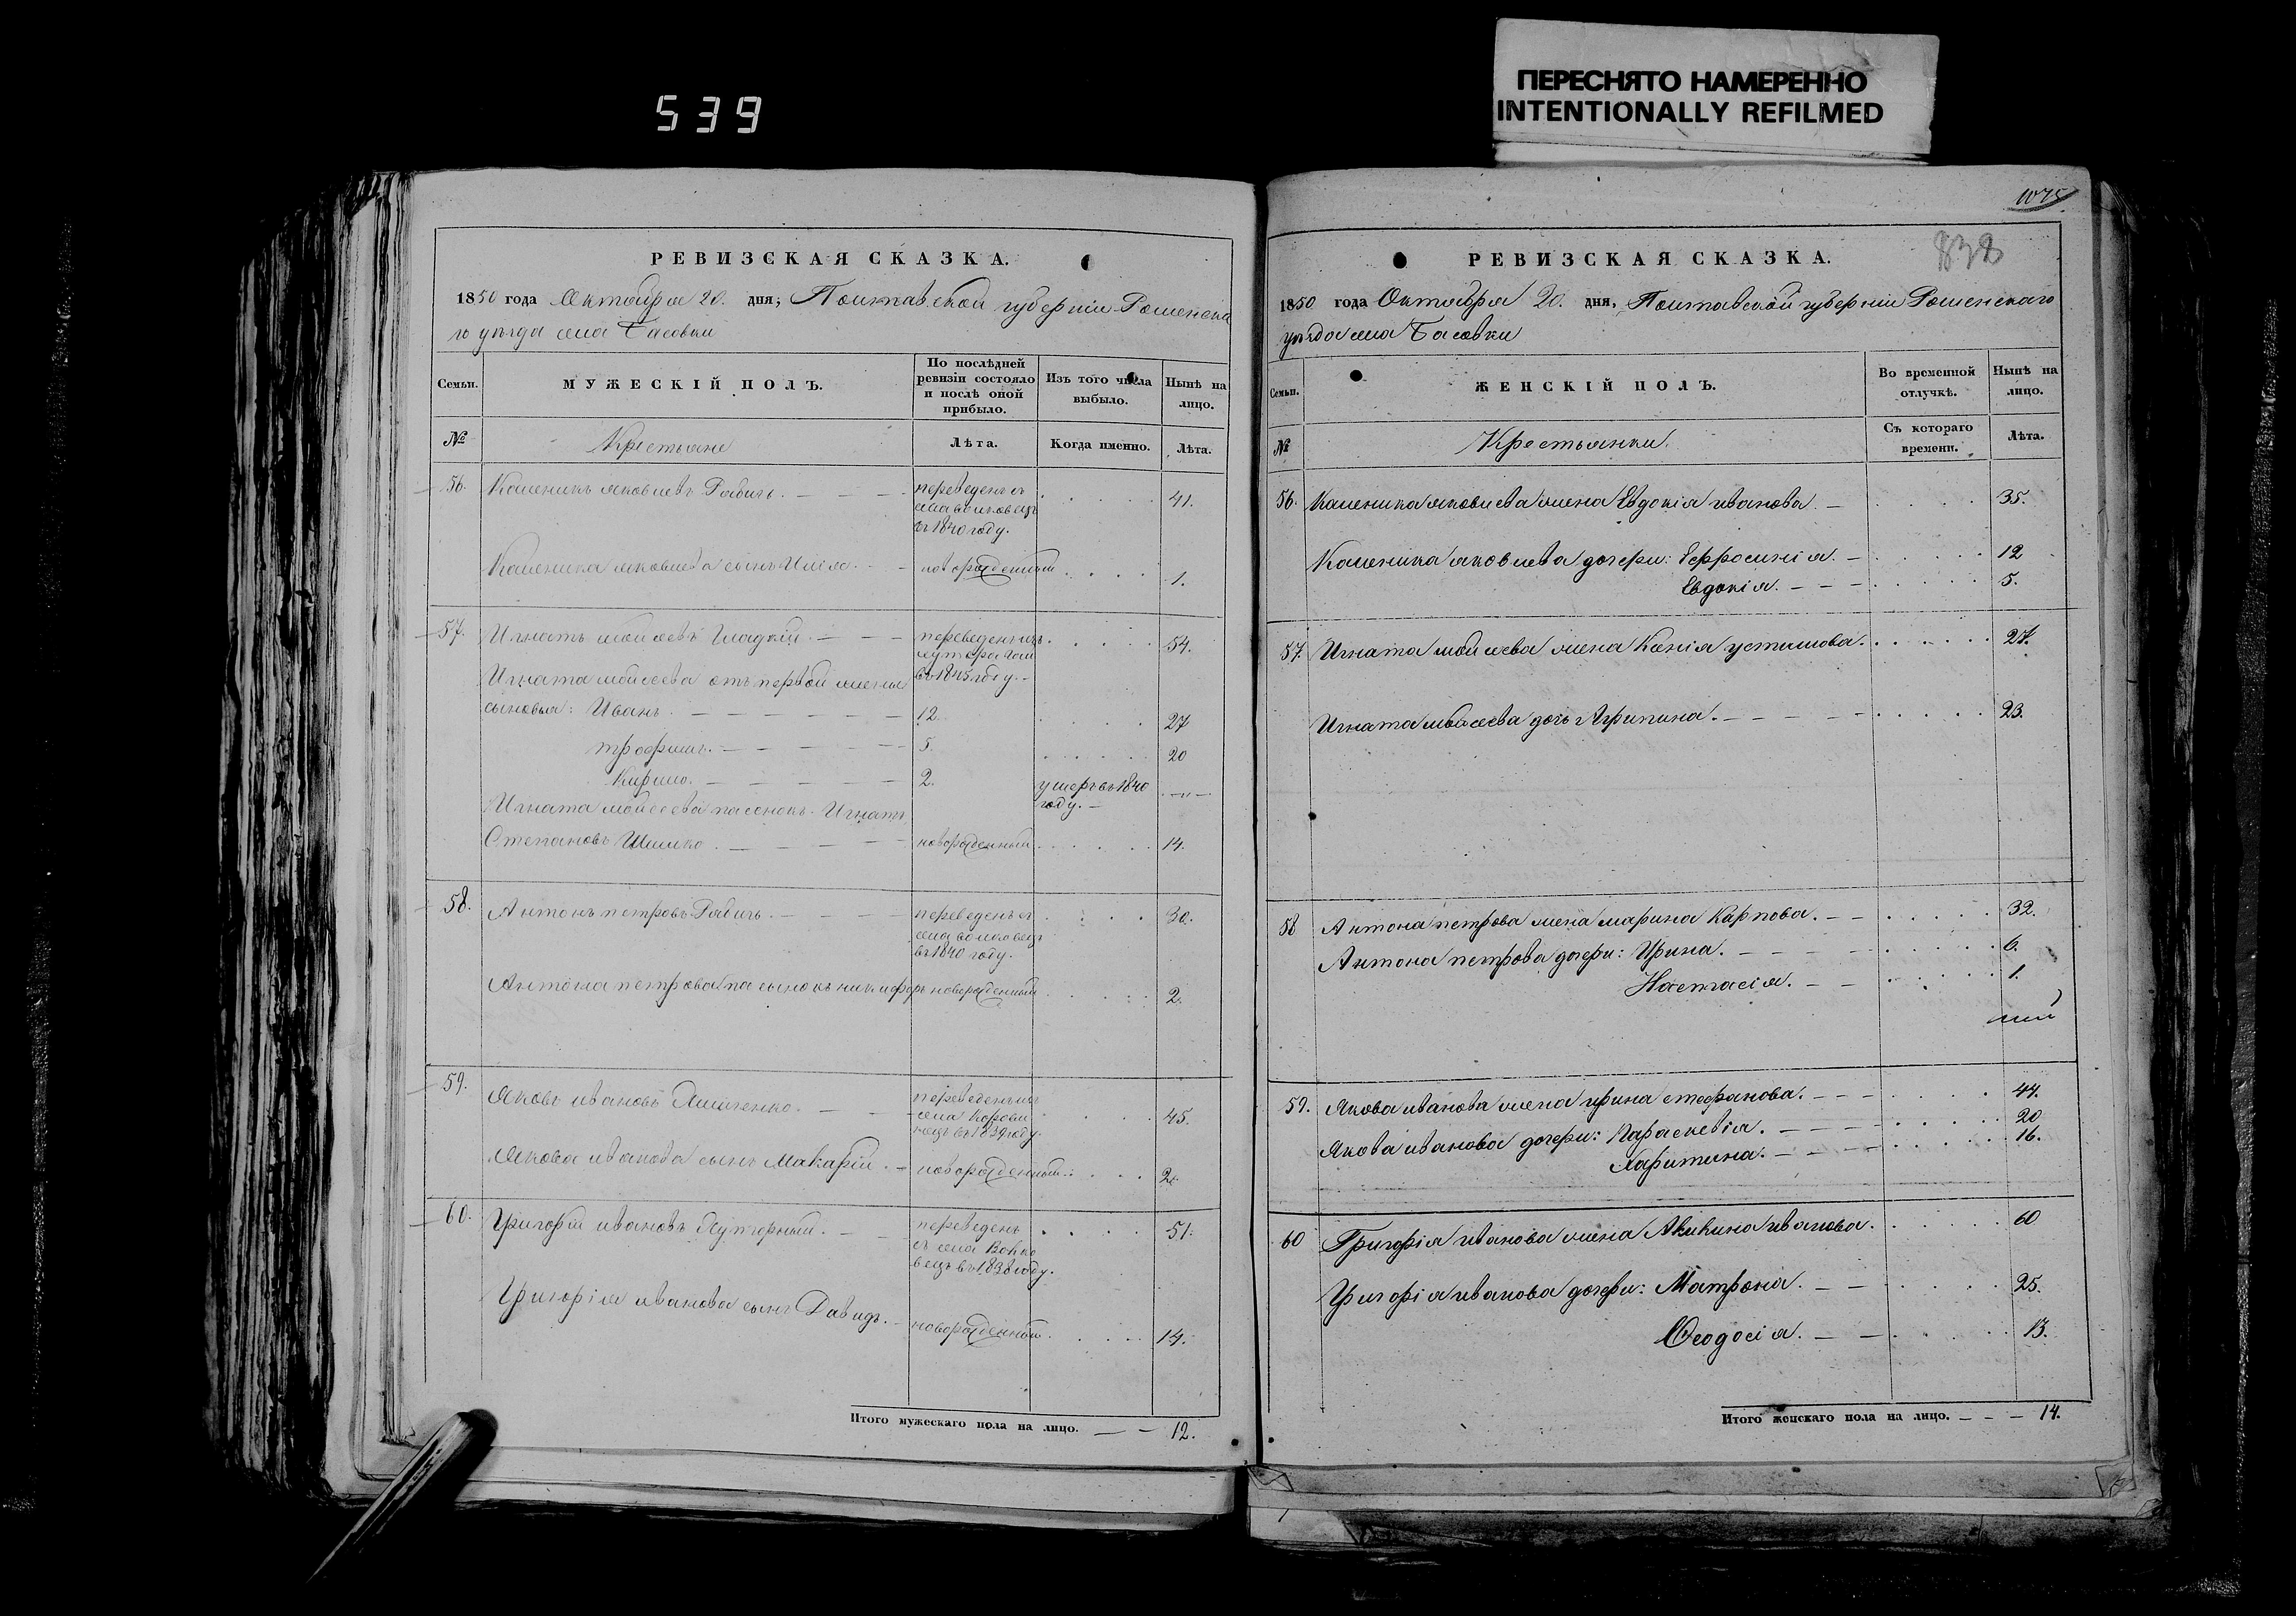 539
ПЕРЕСНЯТО НАМЕРЕННО
INTENTIONALLY REFILMED
РЕВИЗСКАЯ СКАЗКА.
1850 года Октября 20. дня, Полтавской губерніи Роменска
го уѣзда села Басовки
Семьи.
МУЖЕСКІЙ ПОЛЪ.
По послѣдней
ревизіи состояло
и послѣ оной
прибыло.
Изъ того числа
выбыло.
Нынѣ на
лицо.
№
Крестьяне
Лѣта.
Когда именно.
Лѣта.
56. Каленикъ яковлевъ Рабичь. 41.
переведенъ съ
села волковецъ
въ 1840 году.
Каленика яковлева сынъ Илія. новорожденный 1.
57. Игнатъ мойсеевъ Гладкій. 54.
переведенъ изъ
хутора
въ 1845 году.
Игната мойсеева отъ первой жены
сыновья: Иванъ. 12. 27
трофимъ. 5. 20
Кирило. 2. умеръ въ 1840
году.
Игната мойсеева пасенокъ Игнатъ
Степановъ Шишко. новорожденный 14.
58. Антонъ петровъ Рабичь. 30.
переведенъ съ
села волковецъ
въ 1840 году.
Антона петрова пасынокъ никифоръ новорожденный 2.
59. Яковъ ивановъ 45.
переведенъ изъ
села Корови
нецъ въ 1839 году.
Якова иванова сынъ Макарій. новорожденный 2.
60. Григорій ивановъ Хуторный. 51.
переведенъ
съ села Волко
вецъ въ 1838 году.
Григорія иванова сынъ Давидъ. новорожденный 14.
Итого мужескаго пола на лицо. 12.
1075
838
РЕВИЗСКАЯ СКАЗКА.
1850 года Октября 20. дня, Полтавской губерніи Роменскаго
уѣзда села Басовки
Семьи.
ЖЕНСКІЙ ПОЛЪ.
Во временной
отлучкѣ.
Нынѣ на
лицо.
№
Крестьянки.
Съ котораго
времени.
Лѣта.
56. Каленика яковлева жена Евдокія иванова. 35.
Каленика яковлева дочери: Ефросинія. 12
Евдокія. 5.
57. Игната мойсеева жена Ксенія устимова. 27.
Игната мойсеева дочь Агрипина. 23.
58 Антона петрова жена марина Карпова. 32.
Антона петрова дочери: Ирина. 6.
Настасія. 1.
59. Якова иванова жена ирина стефанова. 44.
Якова иванова дочери: Параскевія. 20
Харитина. 16.
60 Григорія иванова жена Акилина иванова. 60
Григорія иванова дочери: Матрона. 25.
Ѳеодосія. 13.
Итого женскаго пола на лицо. 14.